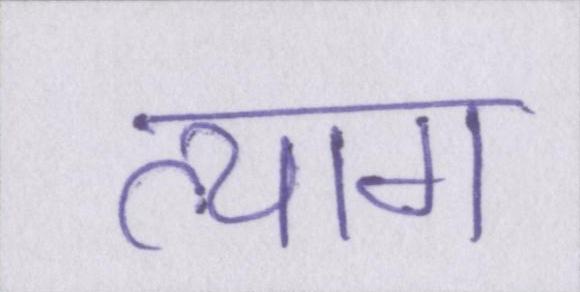 त्याग